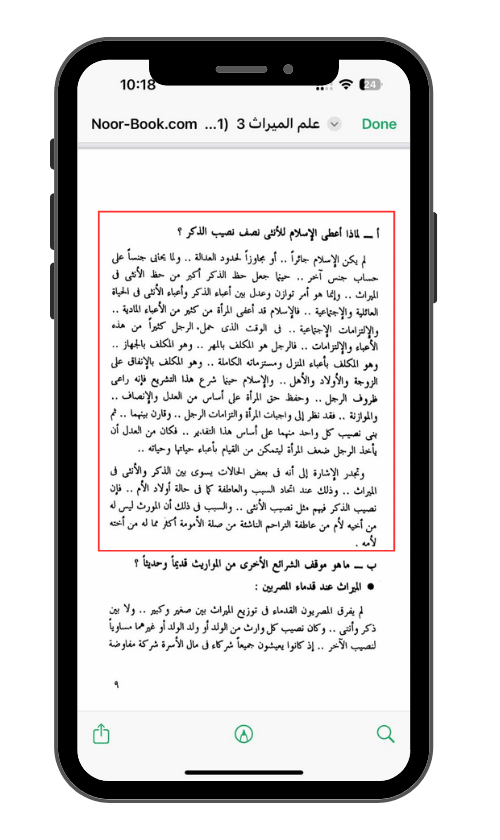 10:18
24
Noor-Book.com علم الميراث 3 (1...
Done
أ ــ لماذا أعطى الإسلام للأنثى نصف نصيب الذكر ؟
لم يكن الإسلام جائراً .. أو مجاوزاً لحدود العدالة .. ولا يحابى جنساً على
حساب جنس آخر .. حينما جعل حظ الذكر أكبر من حظ الأنثى فى
الميراث .. وإنما هو أمر توازن وعدل بين أعباء الذكر وأعباء الأنثى فى الحياة
العائلية والإجتماعية .. فالإسلام قد أعفى المرأة من كثير من الأعباء المادية ..
والإلتزامات الإجتماعية .. فى الوقت الذى حمل الرجل كثيراً من هذه
الأعباء والإلتزامات .. فالرجل هو المكلف بالمهر .. وهو المكلف بالجهاز ..
وهو المكلف بأعباء المنزل ومستزماته الكاملة .. وهو المكلف بالإنفاق على
الزوجة والأولاد والأهل .. والإسلام حينما شرع هذا التشريع فإنه راعى
ظروف الرجل .. وحفظ حق المرأة على أساس من العدل والإنصاف ..
والموازنة .. فقد نظر إلى واجبات المرأة والتزامات الرجل .. وقارن بينهما .. ثم
بنى نصيب كل واحد منهما على أساس هذا التقدير .. فكان من العدل أن
يأخذ الرجل ضعف المرأة ليتمكن من القيام بأعباء حياتها وحياته ..
وتجدر الإشارة إلى أنه فى بعض الحالات يسوى بين الذكر والأنثى فى
الميراث .. وذلك عند اتحاد السبب والعاطفة كما فى حالة أولاد الأم .. فإن
نصيب الذكر فيهم مثل نصيب الأنثى .. والسبب فى ذلك أن المورث ليس له
من أخيه لأم من عاطفة التراحم الناشئة من صلة الأمومة أكثر مما له من أخته
لأمه .
ب ــ ماهو موقف الشرائع الأخرى من المواريث قديماً وحديثاً ؟
● الميراث عند قدماء المصريين :
لم يفرق المصريون القدماء فى توزيع الميراث بين صغير وكبير .. ولا بين
ذكر وأنثى .. وكان نصيب كل وارث من الولد أو ولد الولد أو غيرهما مساوياً
لنصيب الآخر .. إذ كانوا يعيشون جميعاً شركاء فى مال الأسرة شركة مفاوضة
٩